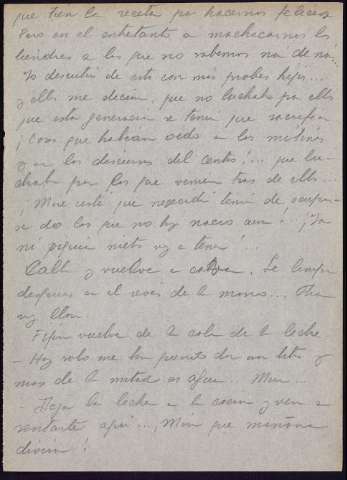 que tien la receta pa hacernos felices
Pero en el entretanto a machacarnos los
liendres a los que no sabemos na de na.
Yo descutía de esto con mis probes hijos...
y ellos me decían que no luchaba pa ellos
que esta generación se tenía que sacrificar
¡Cosas que habían oído a los mitines
y a los descursos del centro!... que lu-
chaba por los que vienen tras de ellos...
¡Mire usté que necesidad tenía de sacrificar-
se dos los que no hay nacío aún! ¡Ya
ni siquiera nieto voy a tener!...
Calla y vuelve a
después en el revés de la mano...
voy
vuelve de la cola de la leche
- Hoy solo me han dao un litro y
más de la mitad es agua...
- Deja la leche en la cocina y ven a
sentarte aquí..., que mañana